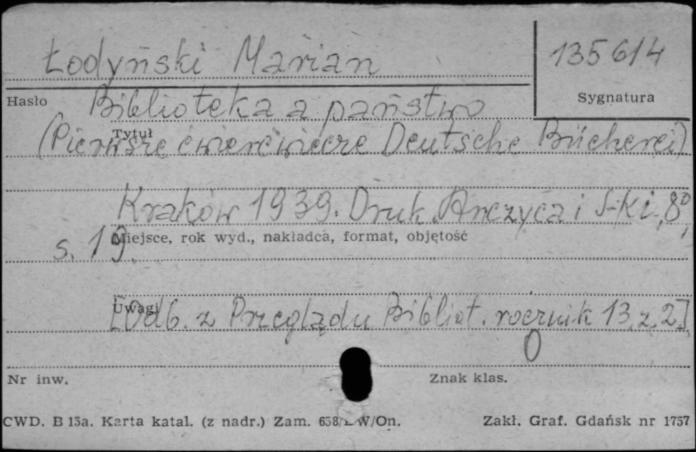 Łodyński Marian
135614
Hasło
Sygnatura
Biblioteka a państwo
Tytuł
(Pierwsze ćwierćwiecze Deutsche Bücherei)
Kraków 1939. Druk. Anczyca i S-ki, 8°,
Miejsce, rok wyd., nakładca, format, objętość
s. 19.
Uwagi
[Odb. z Przeglądu Bibliot. rocznik 13, z. 2.]
Nr inw.
Znak klas.
CWD. B 15a. Karta katal. (z nadr.) Zam. W/On.
Zakł. Graf. Gdańsk nr 1757